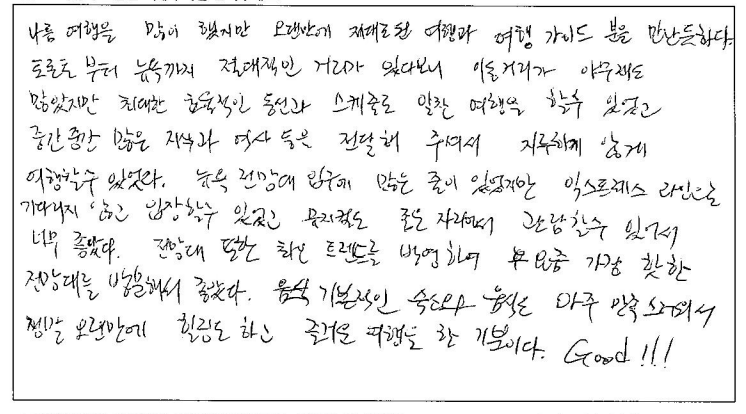 나름 여행을 많이 했지만 오랜만에 제대로된 여행과 여행 가이드 분을 만난듯하다.
토론토 부터 뉴욕까지 절대적인 거리가 있다보니 이동거리가 아무래도
많았지만 최대한 효율적인 동선과 스케줄로 알찬 여행을 할수 있었고
중간중간 많은 지식과 역사 등을 전달해 주셔서 지루하지 않게
여행할수 있었다. 뉴욕 전망대 입구에 많은 줄이 있었지만 익스프레스 라인으로
기다리지 않고 입장할수 있었고 뮤지컬도 좋은 자리에서 관람할수 있어서
너무 좋았다. 전망대 또한 최신 트렌드를 반영하여 요즘 가장 핫한
전망대를 방문해서 좋았다. 기본적인 숙소와 음식도 아주 만족스러워서
정말 오랜만에 힐링도 하고 즐거운 여행을 한 기분이다. Good!!!